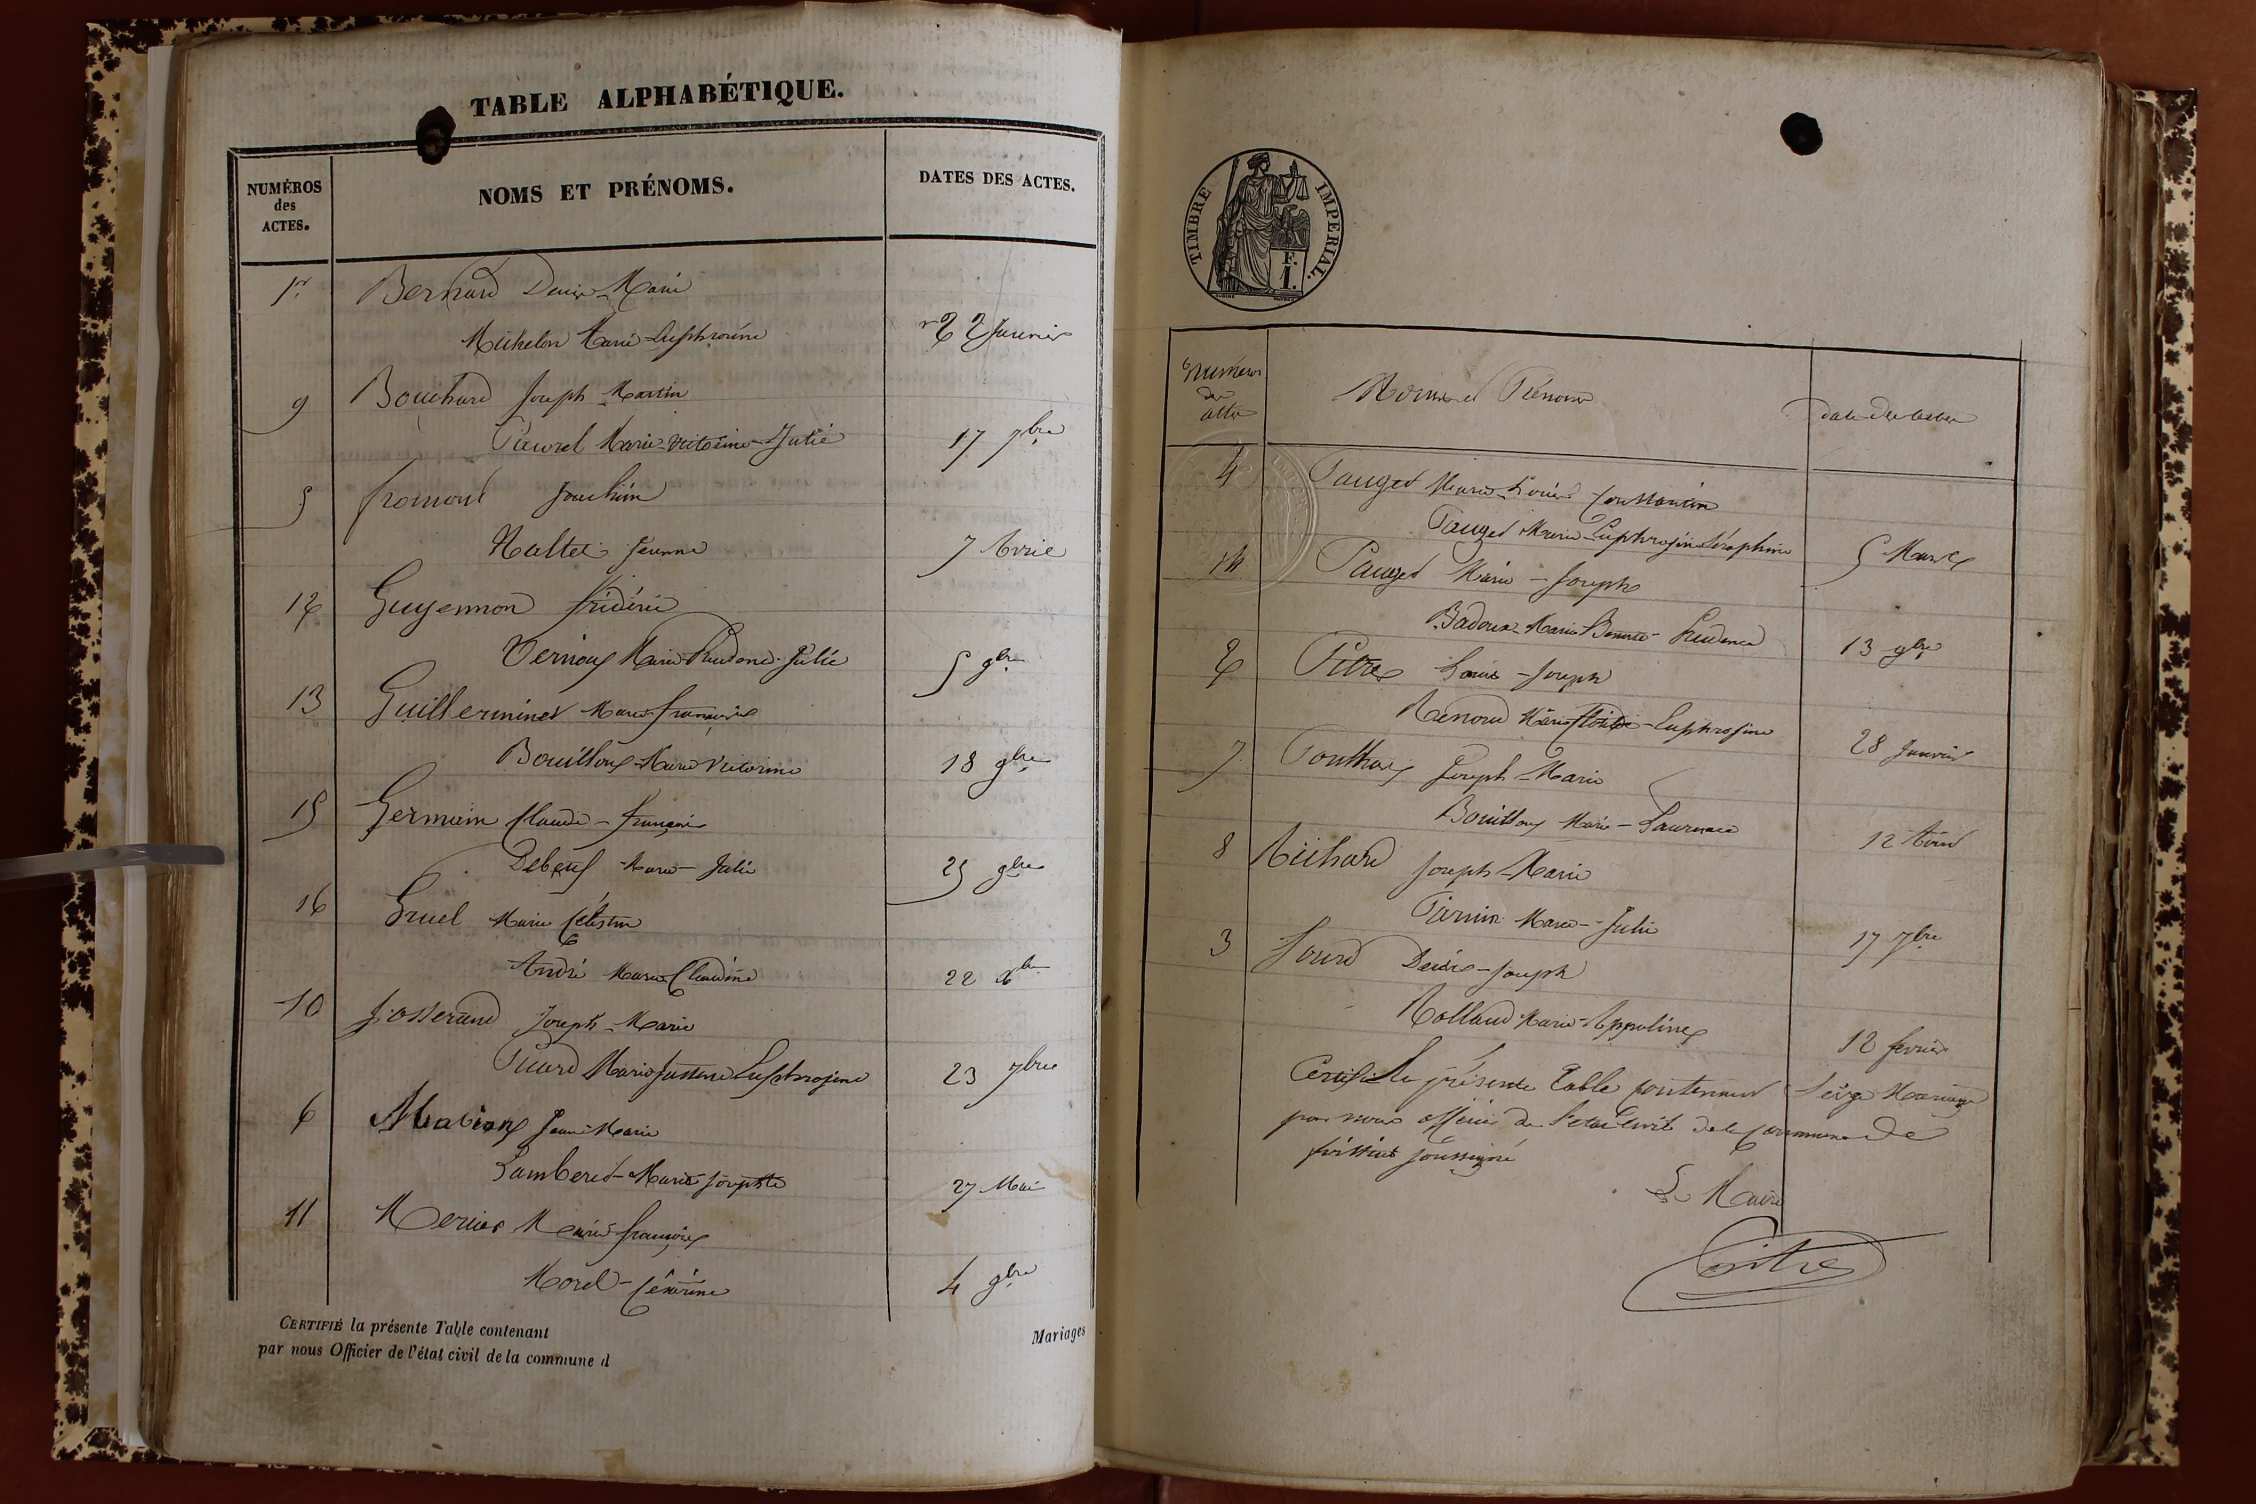 TABLE ALPHABÉTIQUE.
NUMÉROS
des
ACTES.
NOMS ET PRÉNOMS.
DATES DES ACTES.
1er Bernard Denis-Marie
Michelon Marie-Euphrosine 22 Janvier
9 Bouchard Joseph Martin
Marie Victorine Julie 17 7bre
5 fromont Joachim
Jeanne 7 Avril
12 Guyennon frédéric
Vernoux Marie Prudence Julie 5 9bre
13 Guillerminet Marie françois
Bouilloux Marie Victorine 18 9bre
15 Germain Claude-françois
Debeuf Marie-Julie 25 9bre
16 Gruel Marie Célestin
André Marie Claudine 22 Xbre
10 Josserand Joseph-Marie
Picard Marie Justine Euphrosine 23 7bre
6 Jean-Marie
Lamberet Marie Josephte 27 Mai
11 Mercier Marie françois
Morel-Césarine 4 9bre
CERTIFIÉ la présente Table contenant
Mariages
par nous Officier de l'état civil de la commune d
TIMBRE IMPERIAL.
F.
1.
Numéros
des
actes
Noms et Prénoms
date des actes
4 Pauget Marie-Louis-Constantin
Pauget Marie Euphrosine Séraphine 5 Mars
14 Pauget Marie-Joseph
Badoux Marie Benoite-Prudence 13 9bre
2 Pitre Louis-Joseph
Renoud Marie Clotilde-Euphrosine 28 Janvier
7 Ponthus Joseph-Marie
Bouilloux Marie-Laurence 12 Août
8 Richard Joseph-Marie
Marie-Julie 17 7bre
3 Sourd Désiré-Joseph
Rolland Marie-Appoline 12 février
Certifié la présente Table contenant Seize Mariages
par nous officier de l'etat civil de la commune de
foissiat soussigné
Le Maire
Pitre